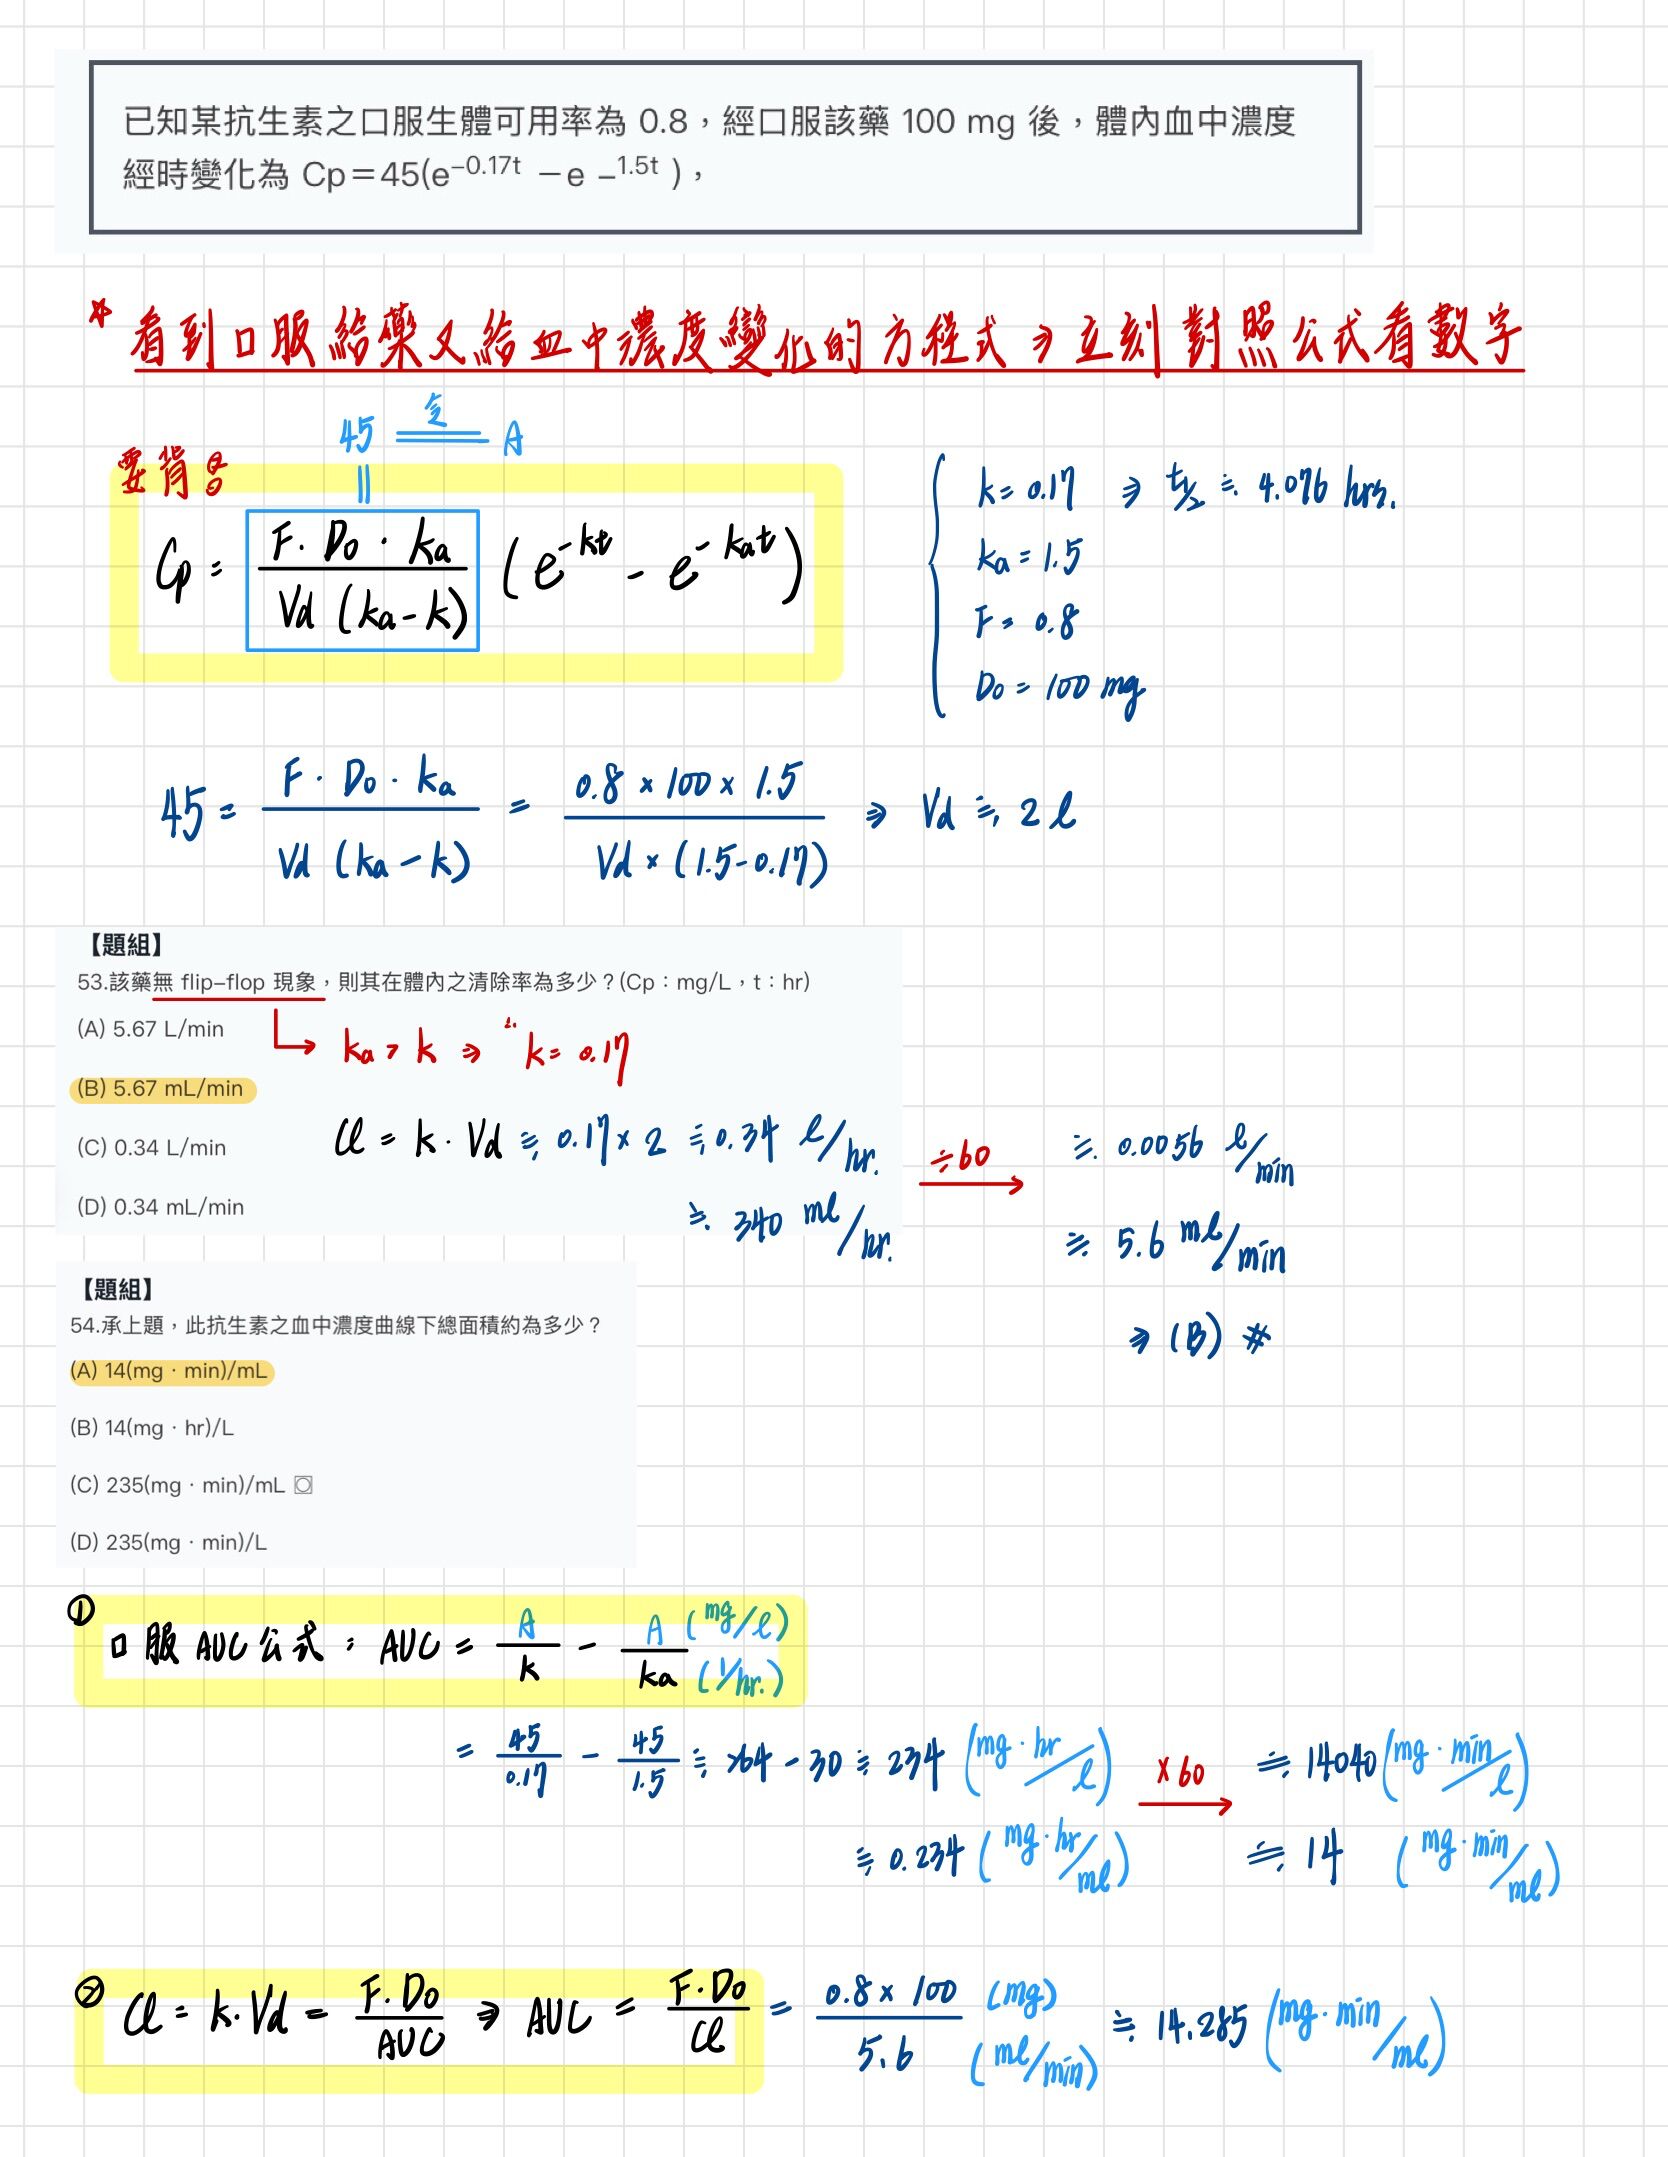 已知某抗生素之口服生體可用率為 0.8，經口服該藥 100 mg 後，體內血中濃度
經時變化為 Cp＝45(e^–0.17t －e –^1.5t )，
☆ 看到口服給藥又給血中濃度變化的方程式 ⇒ 立刻對照公式看數字
45 令 = A
要背!!
Cp = F·D₀·ka / Vd (ka-k) (e^-kt - e^-kat)
k = 0.17 ⇒ t½ ≒ 4.076 hrs.
ka = 1.5
F = 0.8
D₀ = 100 mg
45 = F·D₀·ka / Vd (ka-k) = 0.8 × 100 × 1.5 / Vd × (1.5-0.17) ⇒ Vd ≒ 2 l
【題組】
53.該藥無 flip–flop 現象，則其在體內之清除率為多少？(Cp：mg/L，t：hr)
(A) 5.67 L/min
ka > k ⇒ ∴ k = 0.17
(B) 5.67 mL/min
(C) 0.34 L/min
Cl = k · Vd ≒ 0.17 × 2 ≒ 0.34 l/hr. ÷60 ≒ 0.0056 l/min
(D) 0.34 mL/min
≒ 340 ml/hr. ≒ 5.6 ml/min
⇒ (B) #
【題組】
54.承上題，此抗生素之血中濃度曲線下總面積約為多少？
(A) 14(mg · min)/mL
(B) 14(mg · hr)/L
(C) 235(mg · min)/mL
(D) 235(mg · min)/L
① 口服 AUC 公式 : AUC = A/k - A/ka (mg/l) (1/hr.)
= 45/0.17 - 45/1.5 ≒ 264 - 30 ≒ 234 (mg·hr/l) ×60 ≒ 14040 (mg·min/l)
≒ 0.234 (mg·hr/ml) ≒ 14 (mg·min/ml)
② Cl = k·Vd = F·D₀/AUC ⇒ AUC = F·D₀/Cl = 0.8 × 100 (mg) / 5.6 (ml/min) ≒ 14.285 (mg·min/ml)